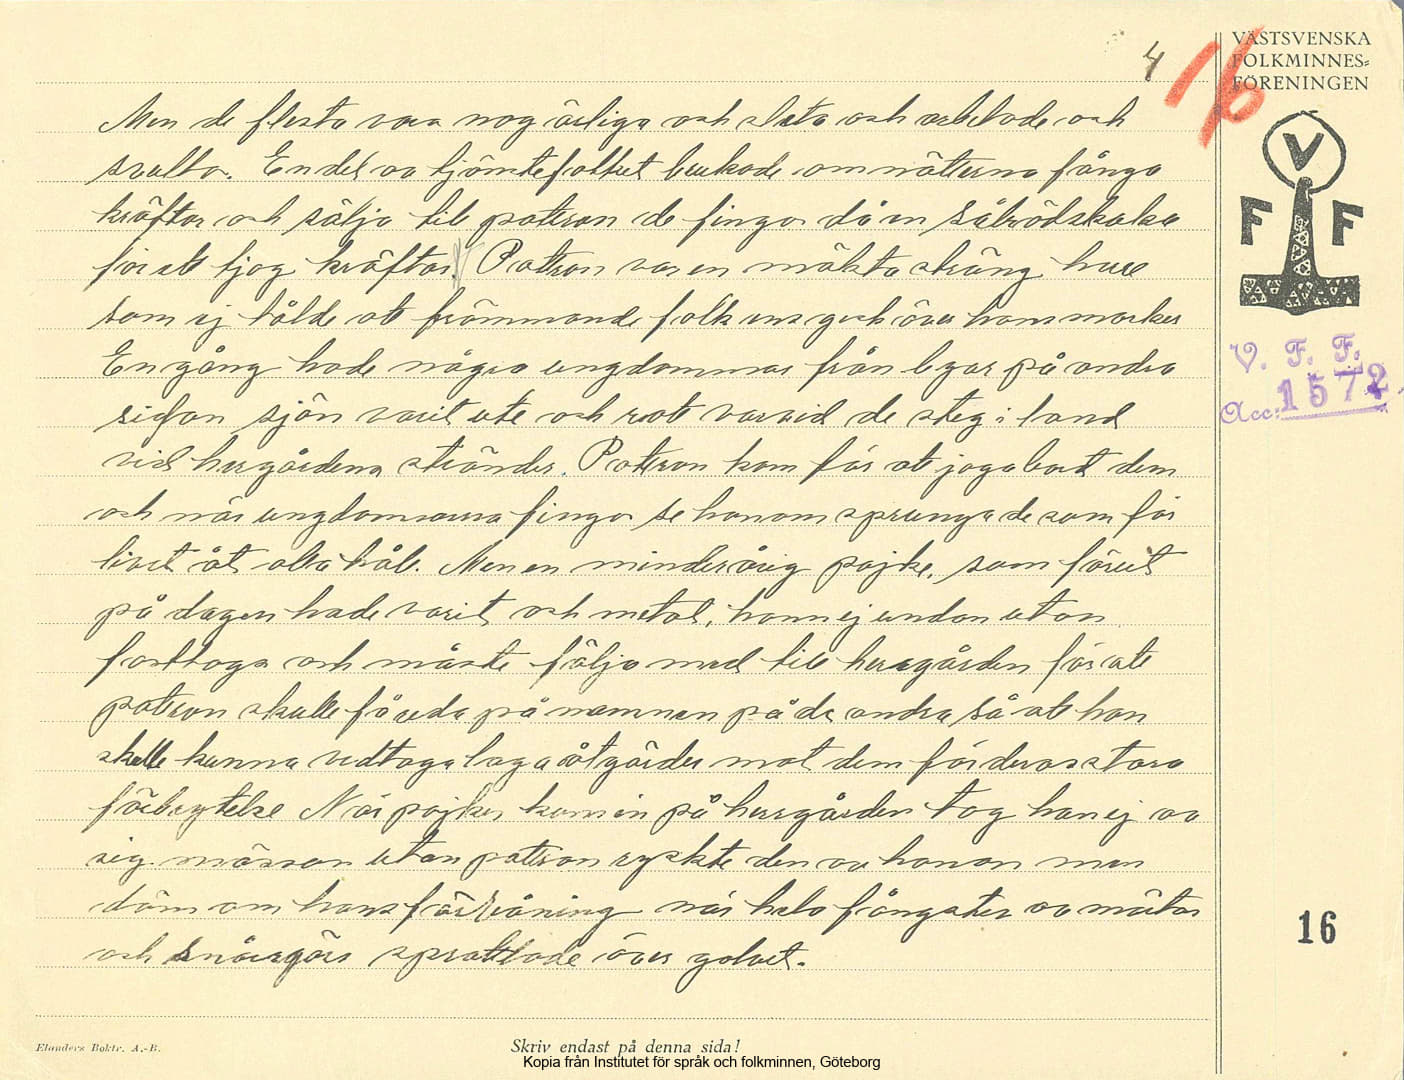 4
16
VÄSTSVENSKA
FOLKMINNES-
FÖRENINGEN
V
F F
V. F. F.
Acc: 1572
Men de flesta vora nog ärliga och sleto och arbetade och
svalto. En del av tjänstefolket brukade om nätterna fånga
kräftor och sälja till patron de fingo då en sålrödskaka
för ett tjog kräftor. Patron var en mäkta sträng herre
som ej tålde att främmande folk ens gick över hans marker
En gång hade några ungdommar från byar på andra
sidan sjön varit ute och rott varvid de steg i land
vid hergårdens stränder. Patron kom för att jaga bort dem
och när ungdomarna fingo se honom sprungo de som för
livet åt alla håll. Men en minderårig pojke, som förut
på dagen hade varit och metat, hann ej undan utan
fasttogs och måste följa med till herrgården för att
patron skulle få reda på namnen på de andra så att han
skulle kunna vidtaga laga åtgärder mot dem för deras stora
förbrytelse När pojken kom in på herrgården tog han ej av
sig mössan utan patron ryckte den av honom men
döm om hans förvåning när hela fångsten av mörtar
och snörgärs sprattlade över golvet.
16
Elanders Boktr. A.-B.
Skriv endast på denna sida!
Kopia från Institutet för språk och folkminnen, Göteborg